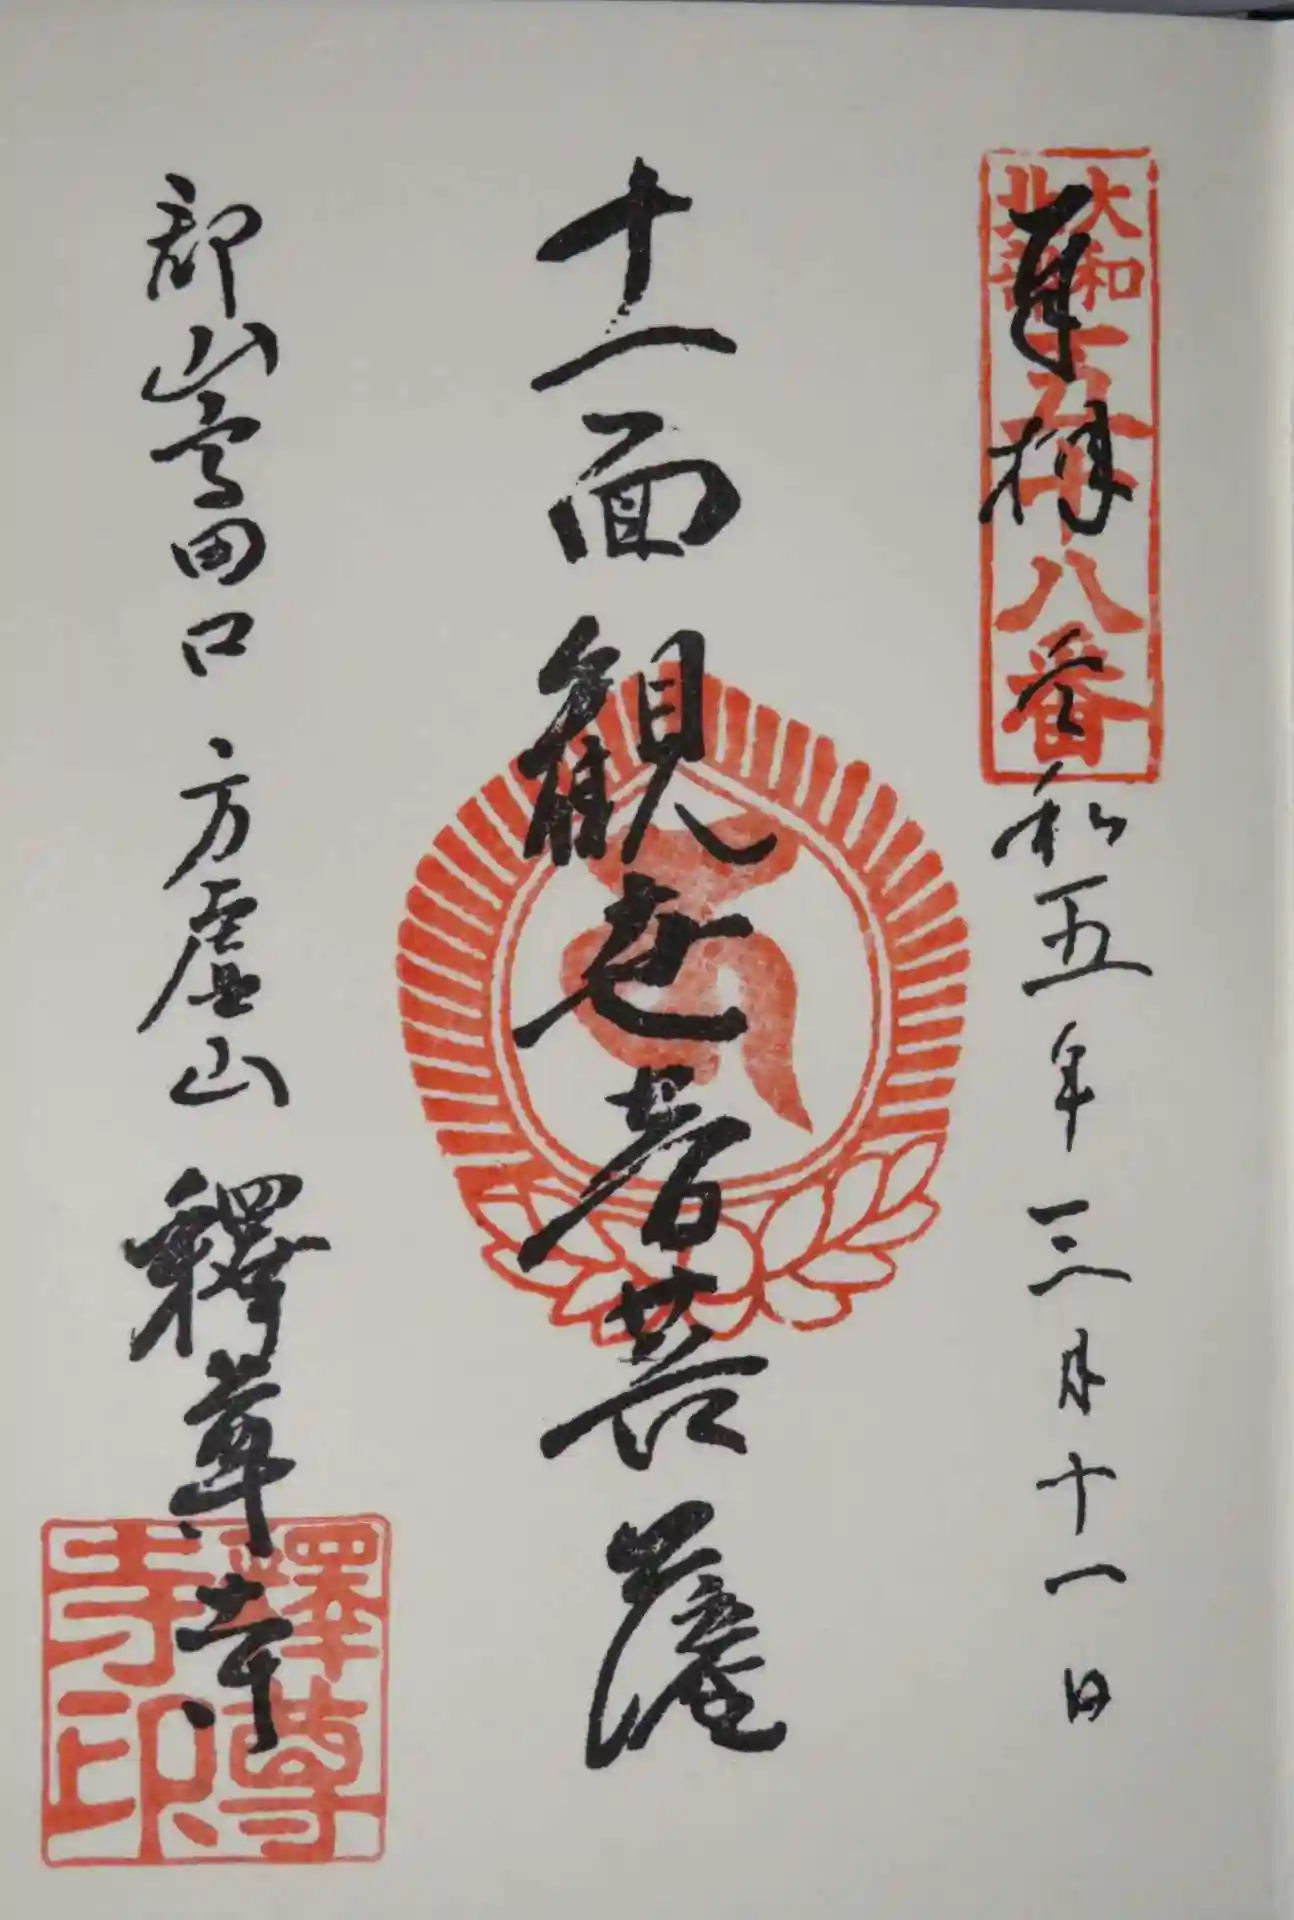 大和
北部
五十八番
奉拝 令和五年三月十一日
十一面観世音菩薩
郡山高田口 釋尊寺
釋尊
寺印